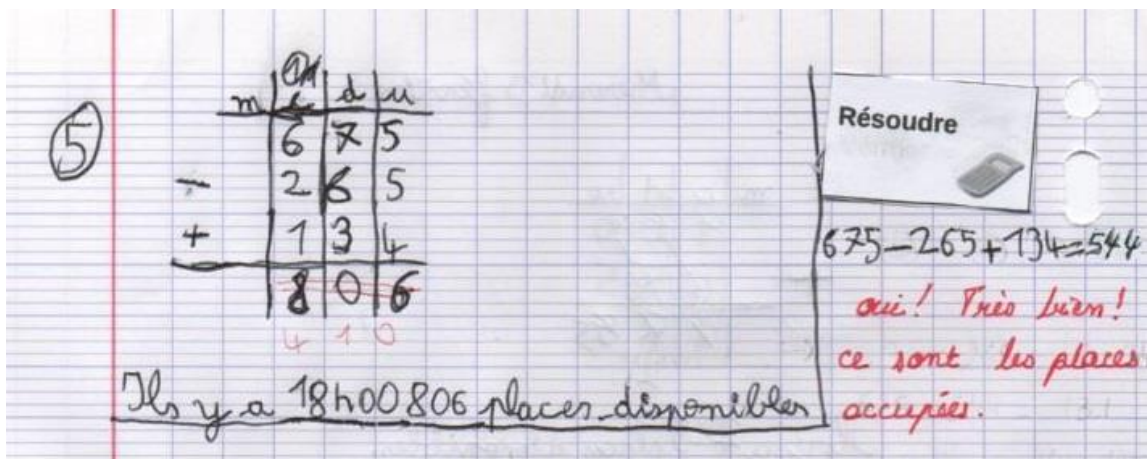 m c d u
5
6 7 5
- 2 6 5
+ 1 3 4
8 0 6
4 1 0
Ils y a 18h00 806 places disponibles
Résoudre
675-265+134=544
oui! Très bien!
ce sont les places
occupées.